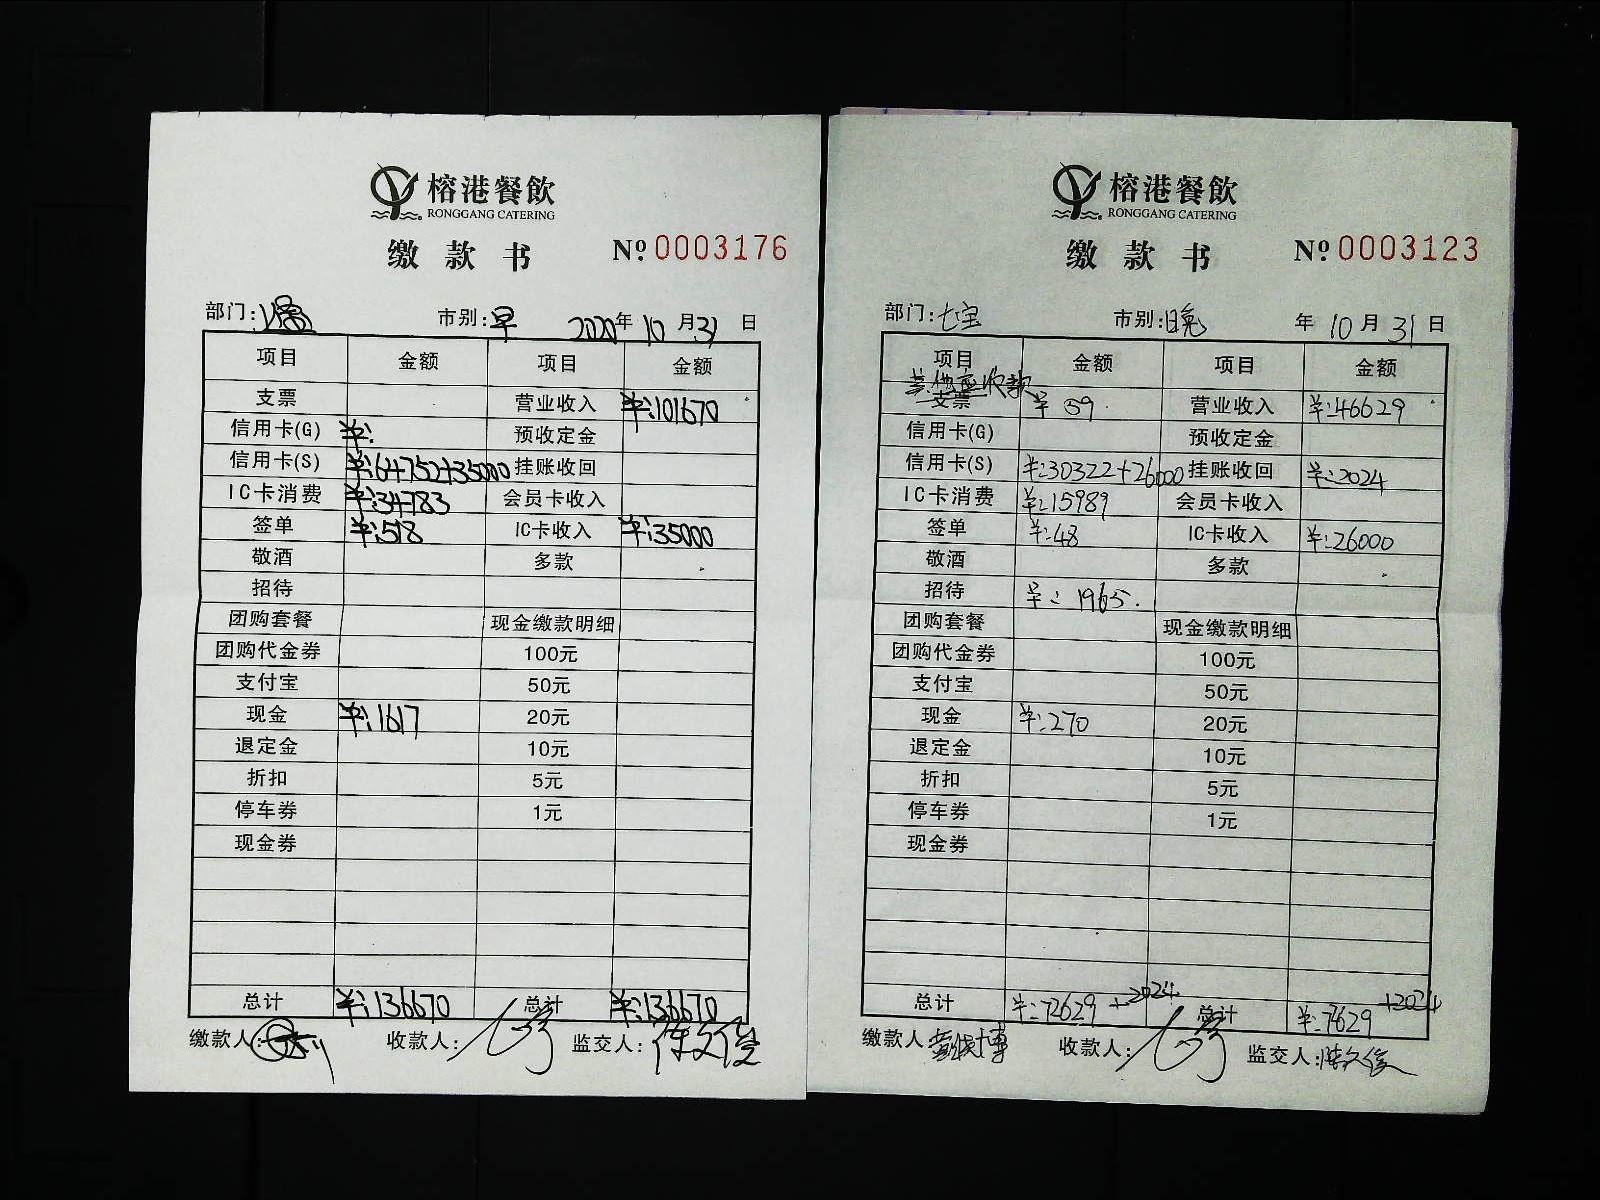 榕港餐飲
RONGGANG CATERING
缴款书 № 0003176
部门: 市别:早 2020年10月31日
项目 金额 项目 金额
支票 营业收入 ¥:101670
信用卡(G) ¥: 预收定金
信用卡(S) ¥:64752+35000 挂账收回
IC卡消费 ¥:34783 会员卡收入
签单 ¥:518 IC卡收入 ¥:35000
敬酒 多款
招待
团购套餐 现金缴款明细
团购代金券 100元
支付宝 50元
现金 ¥:1617 20元
退定金 10元
折扣 5元
停车券 1元
现金券
总计 ¥:136670 总计 ¥:136670
缴款人: 收款人: 监交人:陈文俊
榕港餐飲
RONGGANG CATERING
缴款书 № 0003123
部门:七宝 市别:晚 年10月31日
项目 金额 项目 金额
其他应收款
支票 ¥59 营业收入 ¥:46629
信用卡(G) 预收定金
信用卡(S) ¥:30322+26000 挂账收回 ¥:2024
IC卡消费 ¥:15989 会员卡收入
签单 ¥:48 IC卡收入 ¥:26000
敬酒 多款
招待 ¥:1965.
团购套餐 现金缴款明细
团购代金券 100元
支付宝 50元
现金 ¥:270 20元
退定金 10元
折扣 5元
停车券 1元
现金券
总计 ¥:72629+2024 总计 ¥:7629+2024
缴款人: 收款人: 监交人:陈文俊